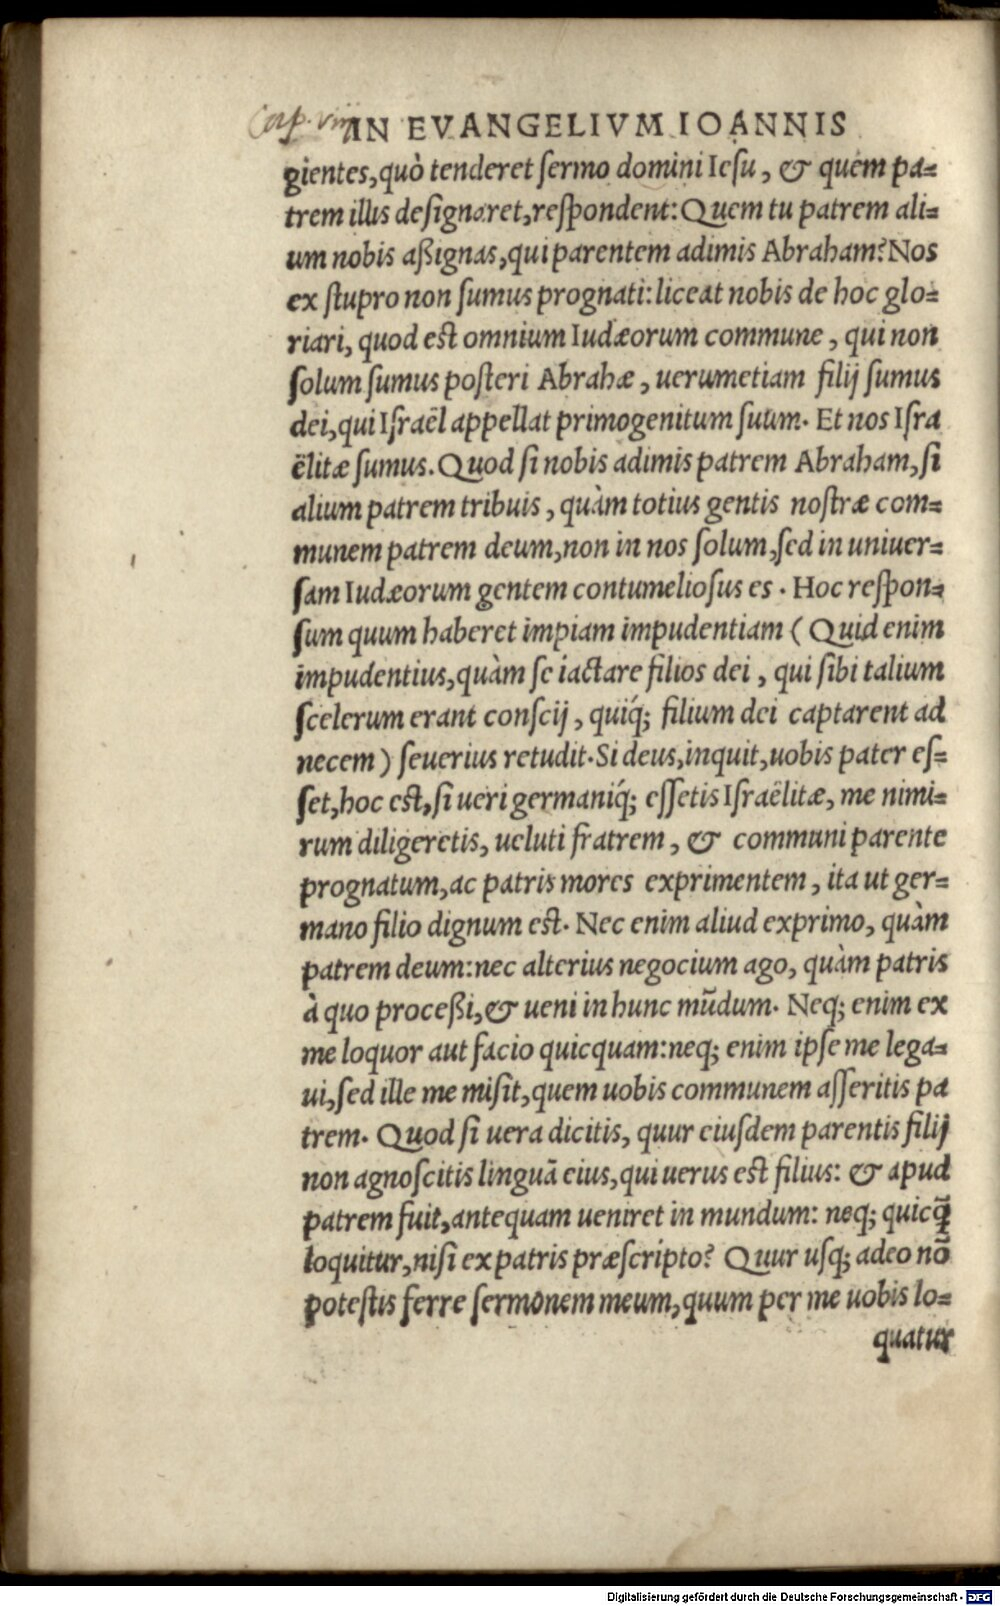 Cap. viij
IN EVANGELIVM IOANNIS
gientes, quò tenderet ſermo domini Ieſu, & quem pa=
trem illis deſignaret, reſpondent: Quem tu patrem ali=
um nobis aßignas, qui parentem adimis Abraham? Nos
ex ſtupro non ſumus prognati: liceat nobis de hoc glo=
riari, quod eſt omnium Iudæorum commune, qui non
ſolum ſumus poſteri Abrahæ, uerumetiam filij ſumus
dei, qui Iſraël appellat primogenitum ſuum. Et nos Iſra
ëlitæ ſumus. Quod ſi nobis adimis patrem Abraham, ſi
alium patrem tribuis, quàm totius gentis noſtræ com=
munem patrem deum, non in nos ſolum, ſed in uniuer=
ſam Iudæorum gentem contumelioſus es. Hoc reſpon=
ſum quum haberet impiam impudentiam (Quid enim
impudentius, quàm ſe iactare filios dei, qui ſibi talium
ſcelerum erant conſcij, quiq́; filium dei captarent ad
necem) ſeuerius retudit. Si deus, inquit, uobis pater eſ=
ſet, hoc eſt, ſi ueri germaniq́; eſſetis Iſraëlitæ, me nimi=
rum diligeretis, ueluti fratrem, & communi parente
prognatum, ac patris mores exprimentem, ita ut ger=
mano filio dignum eſt. Nec enim aliud exprimo, quàm
patrem deum: nec alterius negocium ago, quàm patris
à quo proceßi, & ueni in hunc mũdum. Neq; enim ex
me loquor aut facio quicquam: neq; enim ipſe me lega=
ui, ſed ille me miſit, quem uobis communem aſſeritis pa
trem. Quod ſi uera dicitis, quur eiuſdem parentis filij
non agnoſcitis linguã eius, qui uerus eſt filius: & apud
patrem fuit, antequam ueniret in mundum: neq; quicq̃
loquitur, niſi ex patris præſcripto? Quur uſq; adeo nõ
poteſtis ferre ſermonem meum, quum per me uobis lo=
quatur
Digitalisierung gefördert durch die Deutsche Forschungsgemeinschaft - DFG